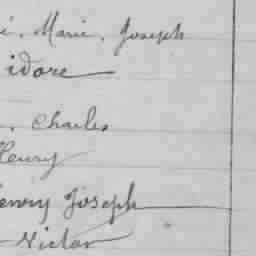 é, Marie, Joseph
idore
, Charles
Henry
Henry Joseph
Victor